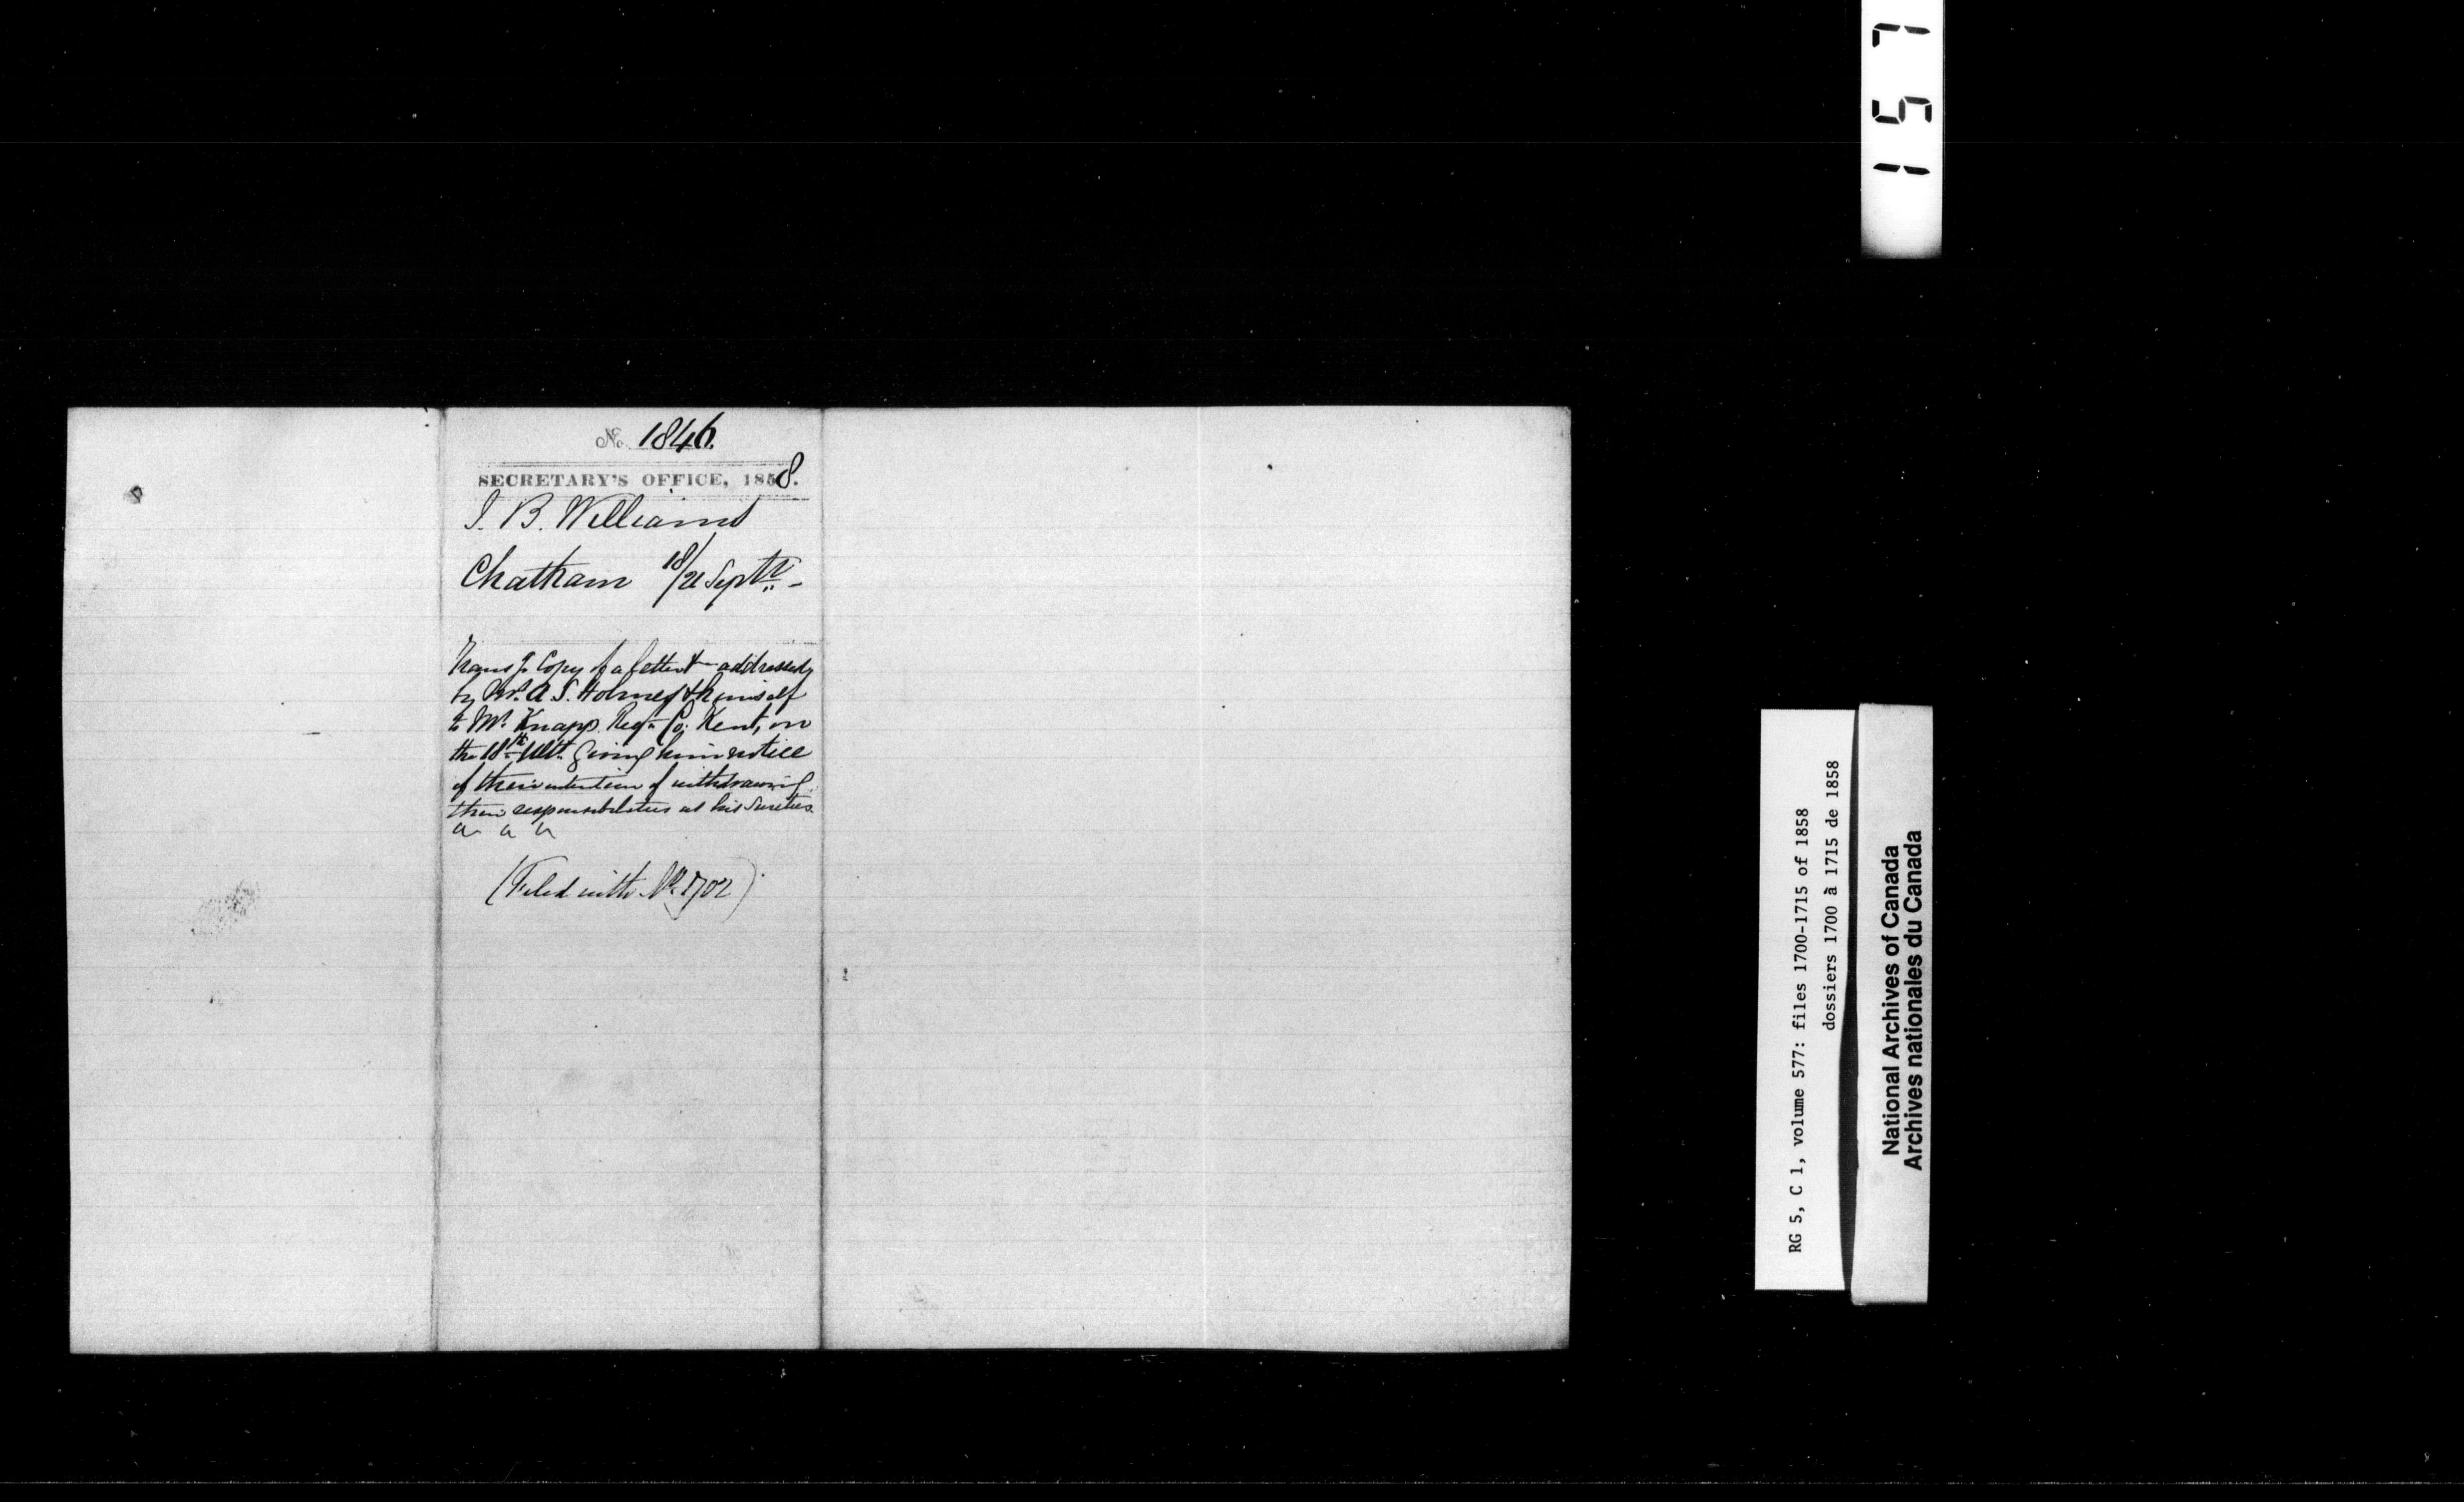 No. 1846.
SECRETARY'S OFFICE, 1858.
J. B. Williams
Chatham 18/21 Septr. -
Transg. Copy of a letter addressed
by Mr. A. S. Holmes & himself
to Mr. Knapp Regr. Co: Kent, on
the 18th Ult. giving him notice
of their intention of withdrawing
their responsibilities as his Sureties
(Filed with No. 1702)
157
RG 5, C 1, volume 577: files 1700-1715 of 1858
dossiers 1700 à 1715 de 1858
National Archives of Canada
Archives nationales du Canada